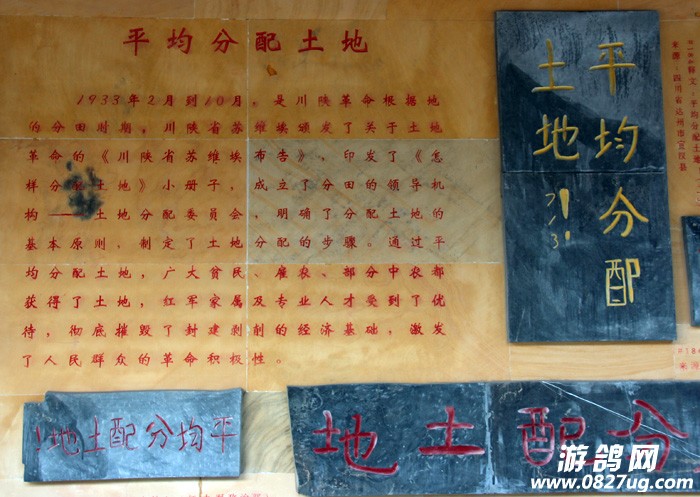 平均分配土地
1933年2月到10月，是川陕革命根据地
的分田时期，川陕省苏维埃颁发了关于土地
革命的《川陕省苏维埃布告》，印发了《怎
样分配土地》小册子，成立了分田的领导机
构——土地分配委员会，明确了分配土地的
基本原则，制定了土地分配的步骤。通过平
均分配土地，广大贫民、雇农、部分中农都
获得了土地，红军家属及专业人才受到了优
待，彻底摧毁了封建剥削的经济基础，激发
了人民群众的革命积极性。
平均分配
土地
来源：四川省达州市宣汉县
平均分配土地！
分配土地
游鸽网
www.0827ug.com